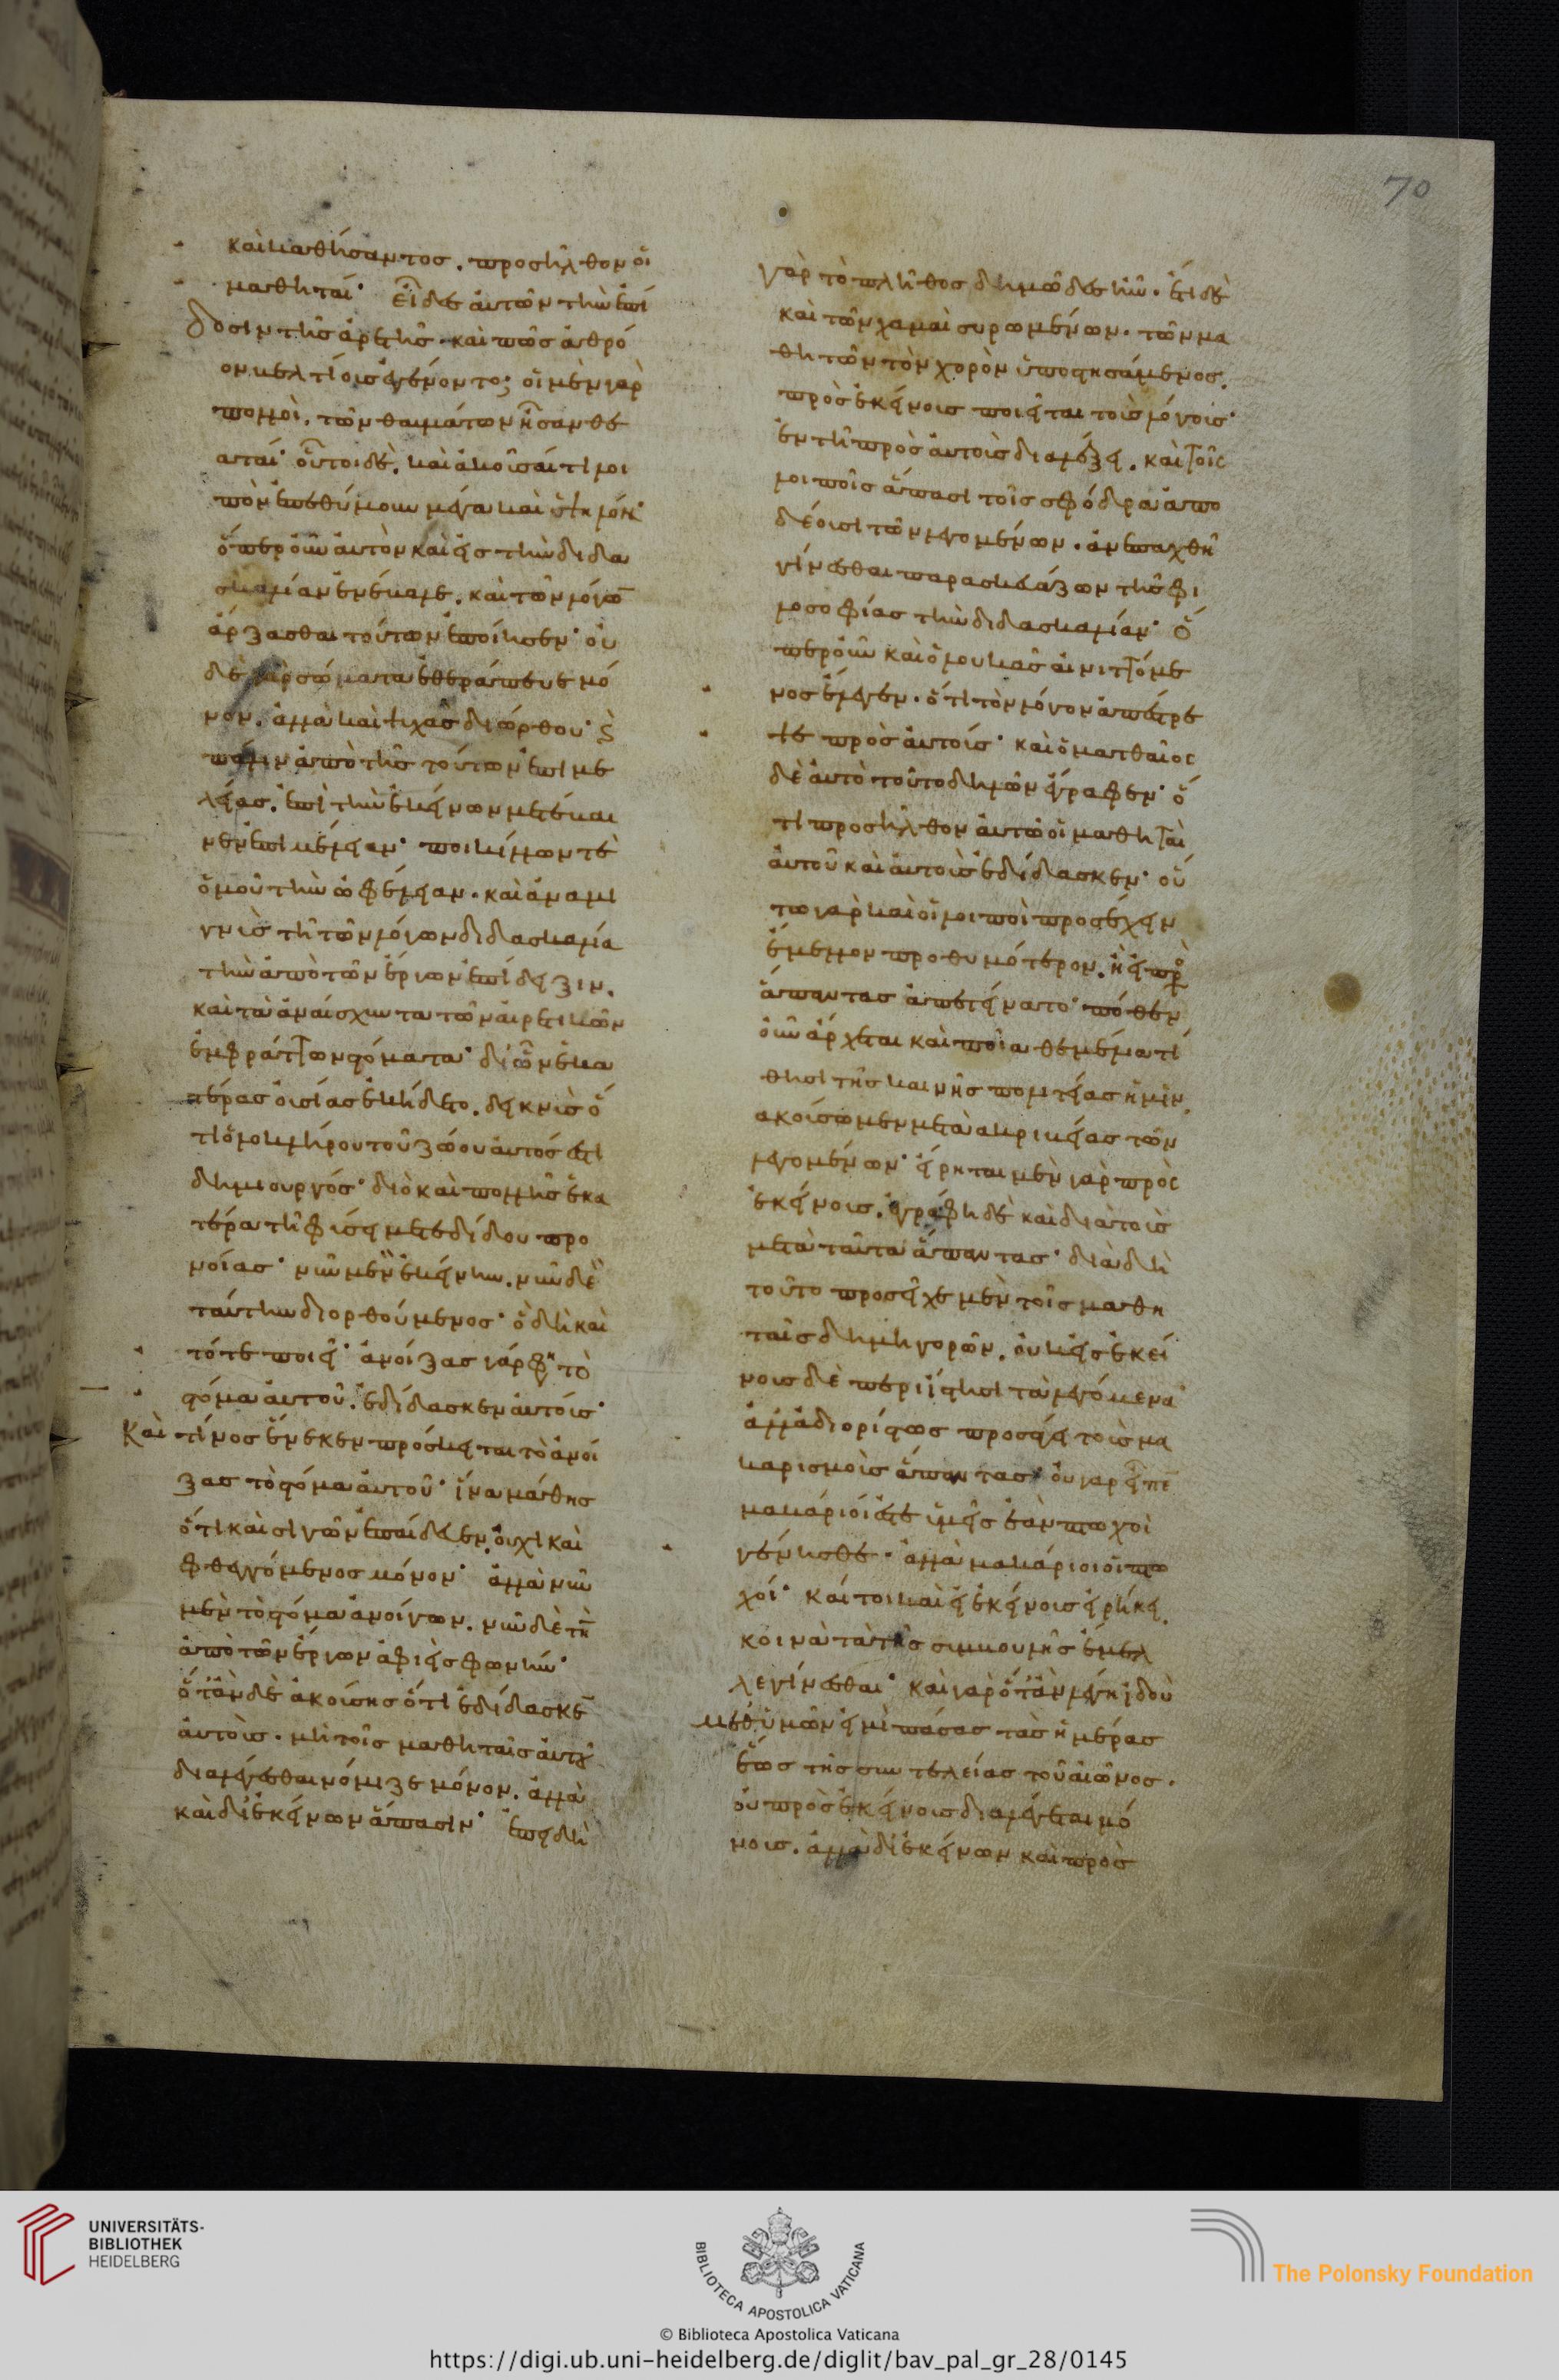 70
καὶ καθίσαντος. προσῆλθον οἱ
μαθηταί· εἶδες αὐτῶν τὴν ἐπί
δοσιν τῆς ἀρετῆς. καὶ πῶς ἀθρό
ον βελτίους ἐγένοντο; οἱ μὲν γὰρ
πολλοὶ. τῶν θαυμάτων ἦσαν θε
αταί· οὗτοι δὲ. καὶ ἀκοῦσαί τι λοι
πὸν ἐπεθύμουν μέγα καὶ ὑψηλόν·
ὅπερ οὖν αὐτὸν καὶ εἰς τὴν διδα
σκαλίαν ἐνέβαλε. καὶ τῶν λόγω̅
ἄρξασθαι τούτων ἐποίησεν· οὐ
δὲ γὰρ σώματα ἐθεράπευε μό
νον. ἀλλὰ καὶ ψυχὰς διώρθου· ϗ
πάλιν ἀπὸ τῆς τούτων ἐπιμε
λείας. ἐπὶ τὴν ἐκείνων μετέβαι
νεν ἐπιμέλειαν· ποικίλλων τὲ
ὁμοῦ τὴν ὠφέλειαν. καὶ ἀναμι
γνὺς τῆ τῶν λόγων διδασκαλία
τὴν ἀπὸ τῶν ἔργων ἐπίδειξιν.
καὶ τὰ ἀναίσχυντα τῶν αἱρετικῶν
ἐμφράττων στόματα· δι' ὧν ἑκα
τέρας οὐσίας ἐκήδετο. δεικνὺς ὅ
τι ὁλοκλήρου τοῦ ζώου αὐτός ἐστι
δημιουργός· διὸ καὶ πολλῆς ἑκα
τέρα τῆ φύσει μετεδίδου προ
νοίας· νῦν μὲν ἐκείνην. νῦν δὲ
ταύτην διορθούμενος· ὃ δὴ καὶ
τότε ποιεῖ· ἀνοίξας γάρ φη τὸ
στόμα αὐτοῦ. ἐδίδασκεν αὐτούς·
Καὶ τίνος ἕνεκεν πρόσκειται τὸ ἀνοί
ξας τὸ στόμα αὐτοῦ· ἵνα μάθης
ὅτι καὶ σιγῶν ἐπαίδευεν. οὐχὶ καὶ
φθεγγόμενος μόνον· ἀλλὰ νῦν
μὲν τὸ στόμα ἀνοίγων. νῦν δὲ τὴ̅
ἀπὸ τῶν ἔργων ἀφιεὶς φωνήν·
ὅταν δὲ ἀκούσης ὅτι ἐδίδασκε̅
αὐτοὺς. μὴ τοῖς μαθηταῖς αὐτοῦ
διαλέγεσθαι νόμιζε μόνον. ἀλλὰ
καὶ δι' ἐκείνων ἅπασιν· ἐπειδὴ
γὰρ τὸ πλῆθος δημῶδες ἦν. ἔτι δὲ
καὶ τῶν χαμαὶ συρομένων. τῶν μα
θητῶν τὸν χορὸν ὑποστησάμενος.
πρὸς ἐκείνους ποιεῖται τοὺς λόγους·
ἐν τῆ πρὸς αὐτοὺς διαλέξει. καὶ τοῖς
λοιποῖς ἅπασι τοῖς σφόδρα ἀπο
δέουσι τῶν λεγομένων. ἀνεπαχθῆ
γίνεσθαι παρασκευάζων τῆς φι
λοσοφίας τὴν διδασκαλίαν· ὅ
περ οὖν καὶ ὁ λουκᾶς αἰνιττόμε
νος ἔλεγεν. ὅτι τὸν λόγον ἀπέστρε
ψε πρὸς αὐτούς· καὶ ὁ ματθαῖος
δὲ αὐτὸ τοῦτο δηλῶν ἔγραφεν· ὅ
τι προσῆλθον αὐτῶ οἱ μαθηταὶ
αὐτοῦ καὶ αὐτοὺς ἐδίδασκεν· οὕ
τω γὰρ καὶ οἱ λοιποὶ προσέχειν
ἔμελλον προθυμότερον. ἢ εἰ πρὸ
ἅπαντας ἀπετείνατο· πόθεν
οὖν ἄρχεται καὶ ποῖα θεμέλια τί
θησι τῆς καινῆς πολιτείας ἡμῖν.
ἀκούσωμεν μετὰ ἀκριβείας τῶν
λεγομένων· εἴρηται μὲν γὰρ πρὸς
ἐκείνους. ἐγράφη δὲ καὶ διὰ τοὺς
μετὰ ταῦτα ἅπαντας· διὰ δὴ
τοῦτο προσεῖχε μὲν τοῖς μαθη
ταῖς δημηγορῶν. οὐκ εἰς ἐκεί
νους δὲ περιΐστησι τὰ λεγόμενα·
ἀλλ' ἀδιορίστως προσάγει τοὺς μα
καρισμοὺς ἅπαντας· οὐ γὰρ εἶπε̅
μακάριοί ἐστε ὑμεῖς ἐὰν πτωχοὶ
γένησθε. ἀλλὰ μακάριοι οἱ πτω
χοί· καίτοι καὶ εἰ ἐκείνοις εἰρήκει.
κοινὰ τὰ τῆς συμβουλῆς ἔμελ
λε γίνεσθαι· καὶ γὰρ ὅταν λέγη ἰδοὺ
μεθ' ὑμῶν εἰμὶ πάσας τὰς ἡμέρας
ἕως τῆς συντελείας τοῦ αἰῶνος.
οὐ πρὸς ἐκείνους διαλέγεται μό
νους. ἀλλὰ δι' ἐκείνων καὶ πρὸς
UNIVERSITÄTS-
BIBLIOTHEK
HEIDELBERG
BIBLIOTECA APOSTOLICA VATICANA
The Polonsky Foundation
© Biblioteca Apostolica Vaticana
https://digi.ub.uni-heidelberg.de/diglit/bav_pal_gr_28/0145